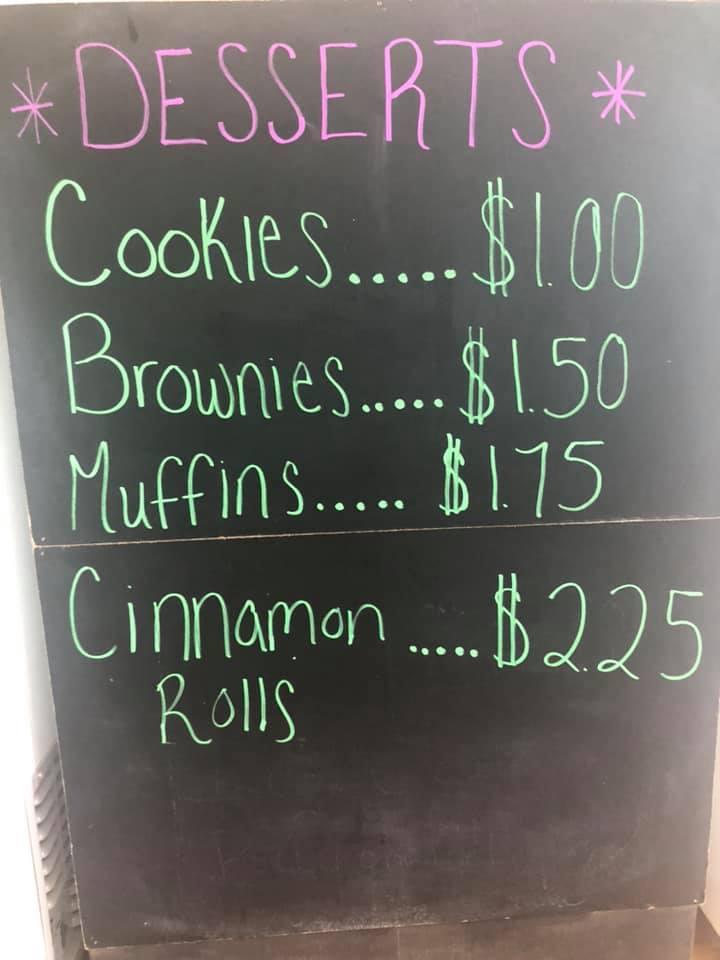 *DESSERTS*
Cookies.....$1.00
Brownies.....$1.50
Muffins.....$1.75
Cinnamon.....$2.25
Rolls